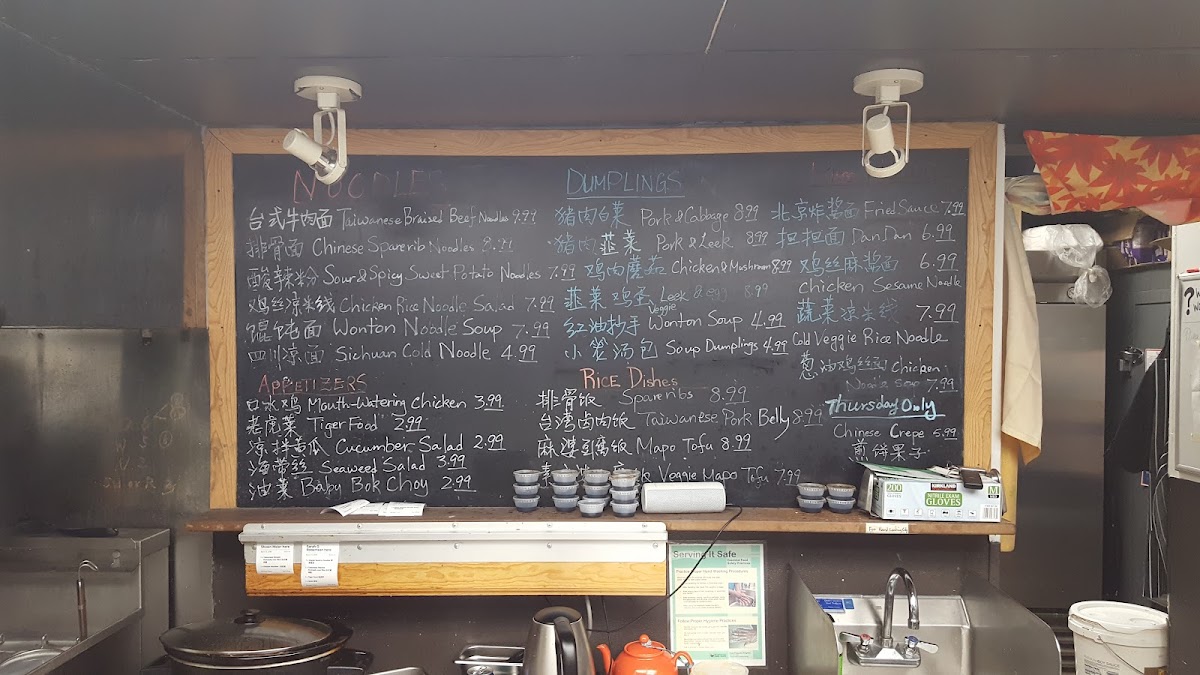 NOODLES
台式牛肉面 Taiwanese Braised Beef Noodles 9.99
排骨面 Chinese Sparerib Noodles
酸辣粉 Sour & Spicy Sweet Potato Noodles 7.99
鸡丝凉米线 Chicken Rice Noodle Salad 7.99
馄饨面 Wonton Noodle Soup 7.99
四川凉面 Sichuan Cold Noodle 4.99
APPETIZERS
口水鸡 Mouth-Watering Chicken 3.99
老虎菜 Tiger Food 2.99
凉拌黄瓜 Cucumber Salad 2.99
海带丝 Seaweed Salad 3.99
油菜 Baby Bok Choy 2.99
DUMPLINGS
猪肉白菜 Pork & Cabbage 8.99
猪肉韭菜 Pork & Leek 8.99
鸡肉蘑菇 Chicken & Mushroom 8.99
韭菜鸡蛋 Leek & egg 8.99
Veggie
红油抄手 Wonton Soup 4.99
小笼汤包 Soup Dumplings 4.99
Rice Dishes
排骨饭 Spareribs 8.99
台湾卤肉饭 Taiwanese Pork Belly 8.99
麻婆豆腐饭 Mapo Tofu 8.99
Veggie Mapo Tofu 7.99
北京炸酱面 Fried Sauce 7.99
担担面 Dan Dan 6.99
鸡丝麻酱面 6.99
chicken Sesame Noodle
蔬菜凉米线 7.99
Cold Veggie Rice Noodle
葱油鸡丝 Chicken
Noodle Soup 7.99
Thursday Only
Chinese Crepe 5.99
煎饼果子
200
GLOVES
KIRKLAND
NITRILE EXAM
GLOVES
M
Serving It Safe
?